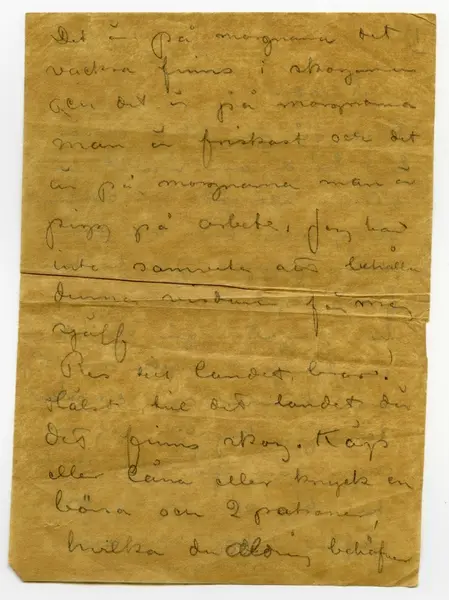 Det är på morgnarna det
vackra finns i skogarna
och det är på morgnarna
man är friskast och det
är på morgnarna man är
pigg på arbete. Jag har
inte samvete att behålla
denna visdom för mig
själf
Res till landet, bror.
Hälst till det landet där
det finns skog. Köp
eller låna eller knyck en
bössa och 2 patroner,
hvilka du aldrig behöfver